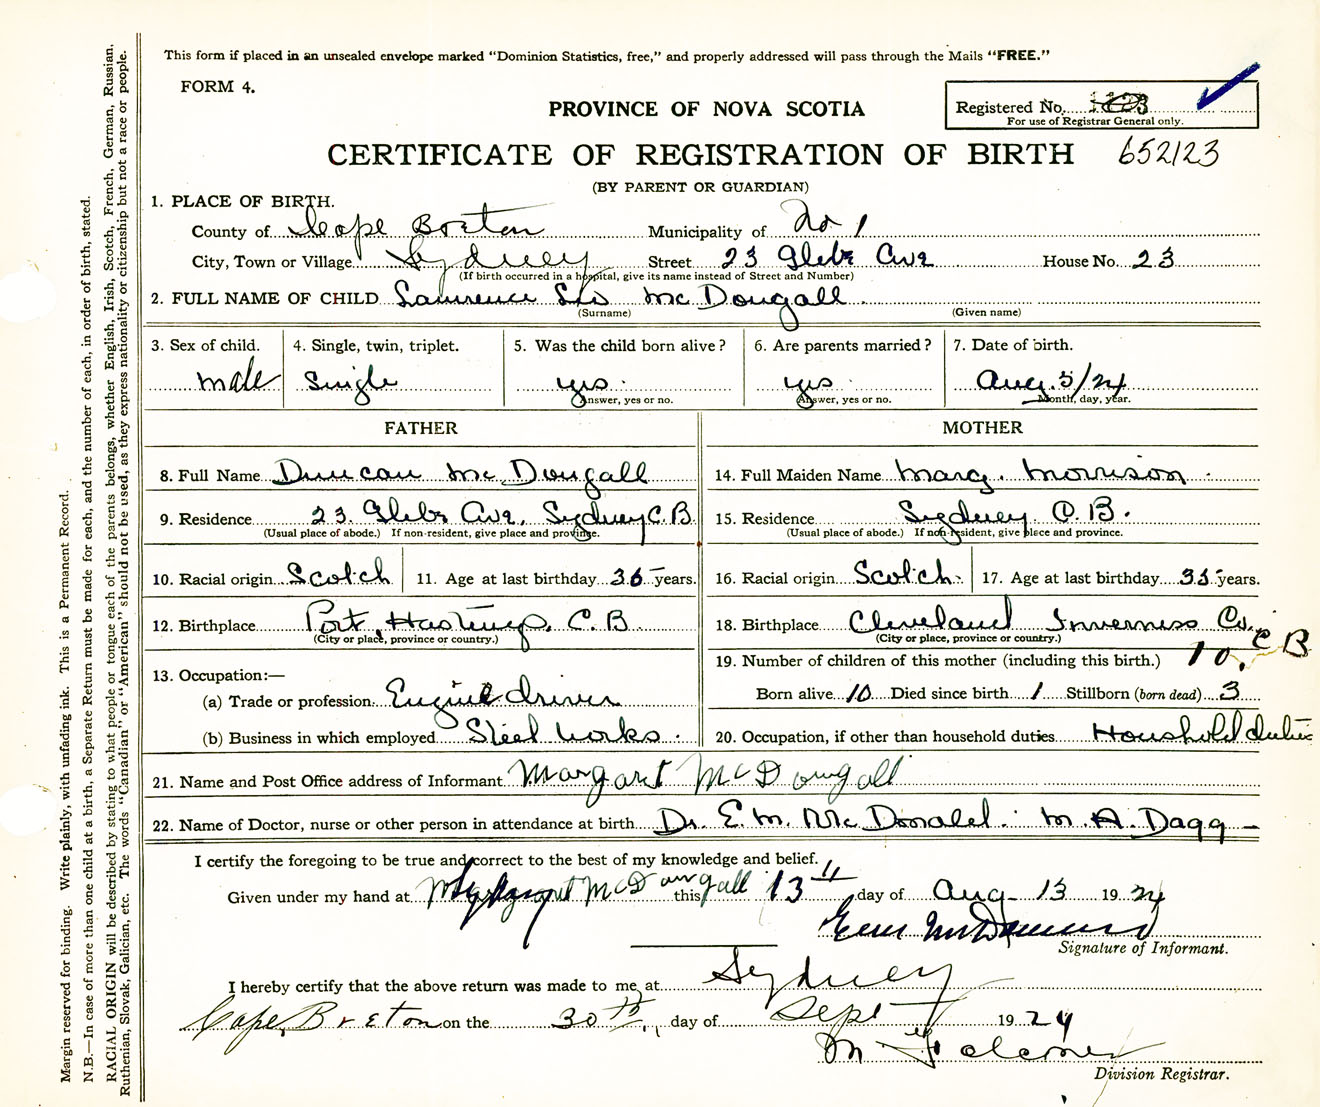 This form if placed in an unsealed envelope marked "Dominion Statistics, free," and properly addressed will pass through the Mails "FREE."
FORM 4.
PROVINCE OF NOVA SCOTIA
Registered No.
For use of Registrar General only.
CERTIFICATE OF REGISTRATION OF BIRTH 652123
(BY PARENT OR GUARDIAN)
1. PLACE OF BIRTH.
County of Cape Breton Municipality of No 1
City, Town or Village Sydney Street 23 Glebe Ave House No. 23
(If birth occurred in a hospital, give its name instead of Street and Number)
2. FULL NAME OF CHILD Lawrence Leo McDougall
(Surname) (Given name)
3. Sex of child. 4. Single, twin, triplet. 5. Was the child born alive? 6. Are parents married? 7. Date of birth.
male Single yes. yes. Aug. 5/24
Answer, yes or no. Answer, yes or no. Month, day, year.
FATHER MOTHER
8. Full Name Duncan McDougall 14. Full Maiden Name Marg. Morrison.
9. Residence 23 Glebe Ave, Sydney C.B. 15. Residence Sydney C.B.
(Usual place of abode.) If non-resident, give place and province. (Usual place of abode.) If non-resident, give place and province.
10. Racial origin Scotch 11. Age at last birthday 36 years. 16. Racial origin Scotch. 17. Age at last birthday 35 years.
12. Birthplace Port Hastings, C.B. 18. Birthplace Cleveland Inverness Co. C B
(City or place, province or country.) (City or place, province or country.)
13. Occupation:— 19. Number of children of this mother (including this birth.) 10.
(a) Trade or profession. Engine driver Born alive 10 Died since birth 1 Stillborn (born dead) 3
(b) Business in which employed Steel works. 20. Occupation, if other than household duties Household duties
21. Name and Post Office address of Informant Margaret McDougall
22. Name of Doctor, nurse or other person in attendance at birth Dr. E. M. McDonald. M. A. Dagg
I certify the foregoing to be true and correct to the best of my knowledge and belief.
Given under my hand at Margaret McDougall this 13th day of Aug 13 1924
Signature of Informant.
I hereby certify that the above return was made to me at Sydney
Cape Breton on the 30th day of Sept 1924
M
Division Registrar.
Margin reserved for binding. Write plainly, with unfading ink. This is a Permanent Record.
N.B.—In case of more than one child at a birth, a Separate Return must be made for each, and the number of each, in order of birth, stated.
RACIAL ORIGIN will be described by stating to what people or tongue each of the parents belongs, whether English, Irish, Scotch, French, German, Russian,
Ruthenian, Slovak, Galician, etc. The words "Canadian" or "American" should not be used, as they express nationality or citizenship but not a race or people.